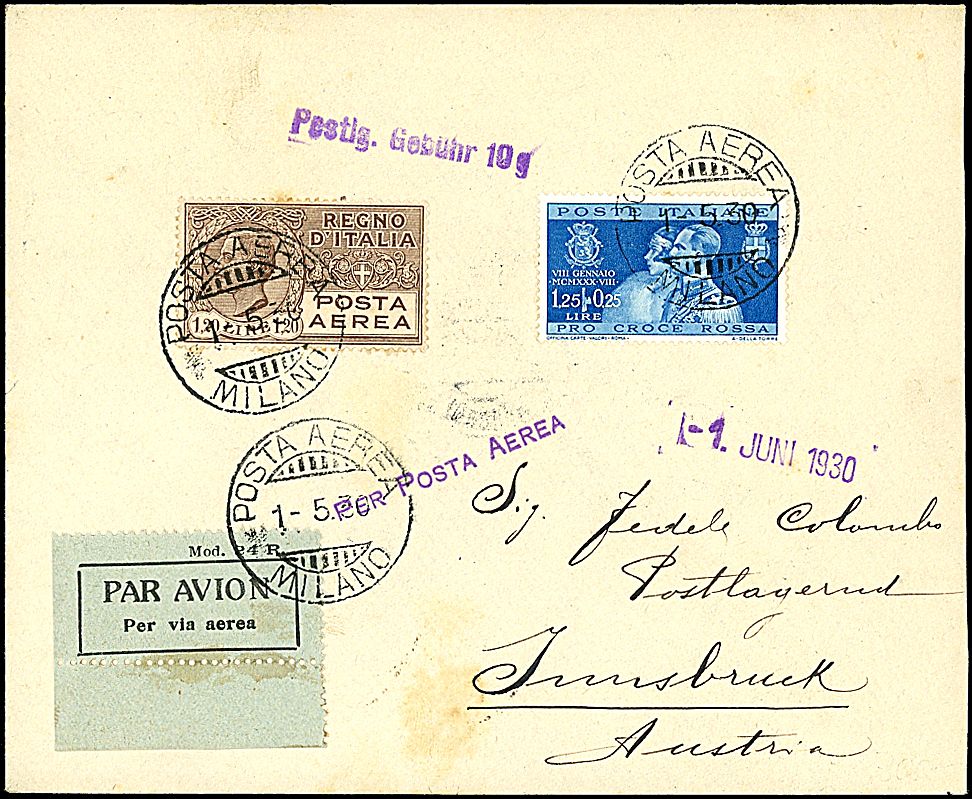 Postlg. Gebühr 10 g
REGNO
D'ITALIA
POSTA
AEREA
1,20 LIRE 1,20
POSTA AEREA
1 - 5.
MILANO
POSTE ITALIANE
VIII GENNAIO
MCMXXX·VIII·
1,25+0,25
LIRE
PRO CROCE ROSSA
OFFICINA CARTE-VALORI-ROMA
A·DELLA TORRE
POSTA AEREA
1 - 5.30
MILANO
-1. JUNI 1930
PER POSTA AEREA
POSTA AEREA
1 - 5.30
MILANO
Sig. Fedele Colombo
Postlagernd
Innsbruck
Austria
Mod. 24 R.
PAR AVION
Per via aerea